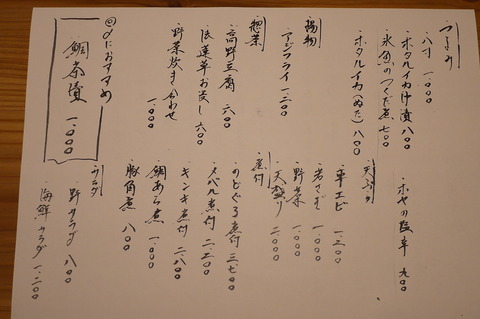 つまみ
・八寸 一.〇〇〇
・ホタルイカ沖漬 八〇〇
・氷魚のつくだ煮 七〇〇
・ホタルイカ(ぬた) 八〇〇
・ホヤの塩辛 九〇〇
天ぷら
・車エビ 一.三〇〇
・若さぎ 一.〇〇〇
・野菜 一.〇〇〇
・天盛り 二.〇〇〇
揚物
・アジフライ 一.二〇〇
惣菜
・高野豆腐 六〇〇
・法蓮草お浸し 六〇〇
・野菜炊き合わせ 一.〇〇〇
煮付
・のどぐろ煮付 三.七〇〇
・メバル煮付 二.二〇〇
・キンキ煮付 二.八〇〇
・鯛あら煮 一.〇〇〇
・豚角煮 八〇〇
サラダ
・野サラダ 八〇〇
・海鮮サラダ 一.二〇〇
におすすめ
鯛茶漬 一.〇〇〇